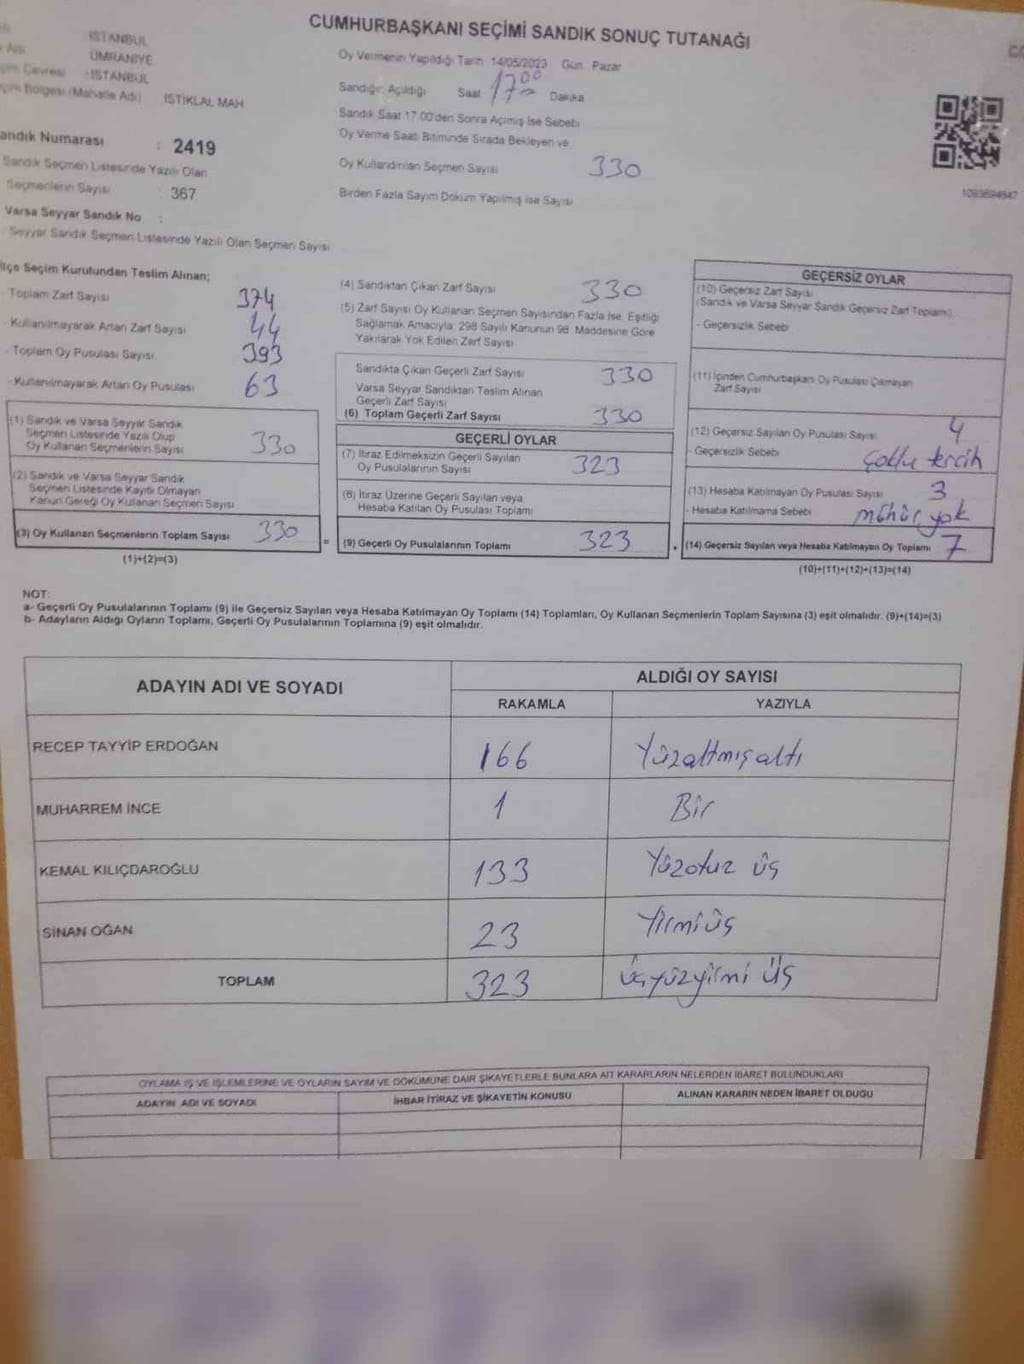 CUMHURBAŞKANI SEÇİMİ SANDIK SONUÇ TUTANAĞI
İSTANBUL
ÜMRANİYE
İSTANBUL
Bölgesi (Mahalle Adı) İSTİKLAL MAH
andık Numarası : 2419
Sandık Seçmen Listesinde Yazılı Olan
Seçmenlerin Sayısı : 367
Varsa Seyyar Sandık No :
Seyyar Sandık Seçmen Listesinde Yazılı Olan Seçmen Sayısı
Oy Vermenin Yapıldığı Tarih 14/05/2023 Gün Pazar
Sandığın Açıldığı Saat 17 00 Dakika
Sandık Saat 17.00'den Sonra Açılmış İse Sebebi
Oy Verme Saati Bitiminde Sırada Bekleyen ve
Oy Kullandırılan Seçmen Sayısı 330
Birden Fazla Sayım Döküm Yapılmış ise Sayısı
1093694647
İlçe Seçim Kurulundan Teslim Alınan;
- Toplam Zarf Sayısı 374
- Kullanılmayarak Artan Zarf Sayısı 44
- Toplam Oy Pusulası Sayısı 393
- Kullanılmayarak Artan Oy Pusulası 63
(1) Sandık ve Varsa Seyyar Sandık
Seçmen Listesinde Yazılı Olup
Oy Kullanan Seçmenlerin Sayısı 330
(2) Sandık ve Varsa Seyyar Sandık
Seçmen Listesinde Kayıtlı Olmayan
Kanun Gereği Oy Kullanan Seçmen Sayısı
(3) Oy Kullanan Seçmenlerin Toplam Sayısı 330
(1)+(2)=(3)
(4) Sandıktan Çıkan Zarf Sayısı 330
(5) Zarf Sayısı Oy Kullanan Seçmen Sayısından Fazla İse, Eşitliği
Sağlamak Amacıyla; 298 Sayılı Kanunun 98. Maddesine Göre
Yakılarak Yok Edilen Zarf Sayısı
Sandıkta Çıkan Geçerli Zarf Sayısı 330
Varsa Seyyar Sandıktan Teslim Alınan
Geçerli Zarf Sayısı
(6) Toplam Geçerli Zarf Sayısı 330
GEÇERLİ OYLAR
(7) İtiraz Edilmeksizin Geçerli Sayılan
Oy Pusulalarının Sayısı 323
(8) İtiraz Üzerine Geçerli Sayılan veya
Hesaba Katılan Oy Pusulası Toplamı
= (9) Geçerli Oy Pusulalarının Toplamı 323 +
GEÇERSİZ OYLAR
(10) Geçersiz Zarf Sayısı
(Sandık ve Varsa Seyyar Sandık Geçersiz Zarf Toplamı)
- Geçersizlik Sebebi
(11) İçinden Cumhurbaşkanı Oy Pusulası Çıkmayan
Zarf Sayısı
(12) Geçersiz Sayılan Oy Pusulası Sayısı 4
- Geçersizlik Sebebi çoklu tercih
(13) Hesaba Katılmayan Oy Pusulası Sayısı 3
- Hesaba Katılmama Sebebi mühür yok
(14) Geçersiz Sayılan veya Hesaba Katılmayan Oy Toplamı 7
(10)+(11)+(12)+(13)=(14)
NOT:
a- Geçerli Oy Pusulalarının Toplamı (9) ile Geçersiz Sayılan veya Hesaba Katılmayan Oy Toplamı (14) Toplamları, Oy Kullanan Seçmenlerin Toplam Sayısına (3) eşit olmalıdır. (9)+(14)=(3)
b- Adayların Aldığı Oyların Toplamı, Geçerli Oy Pusulalarının Toplamına (9) eşit olmalıdır.
ADAYIN ADI VE SOYADI
ALDIĞI OY SAYISI
RAKAMLA YAZIYLA
RECEP TAYYİP ERDOĞAN 166 Yüzaltmışaltı
MUHARREM İNCE 1 Bir
KEMAL KILIÇDAROĞLU 133 Yüzotuz üç
SİNAN OĞAN 23 Yirmiüç
TOPLAM 323 Üçyüzyirmi üç
OYLAMA İŞ VE İŞLEMLERİNE VE OYLARIN SAYIM VE DÖKÜMÜNE DAİR ŞİKAYETLERLE BUNLARA AİT KARARLARIN NELERDEN İBARET BULUNDUKLARI
ADAYIN ADI VE SOYADI İHBAR İTİRAZ VE ŞİKAYETİN KONUSU ALINAN KARARIN NEDEN İBARET OLDUĞU